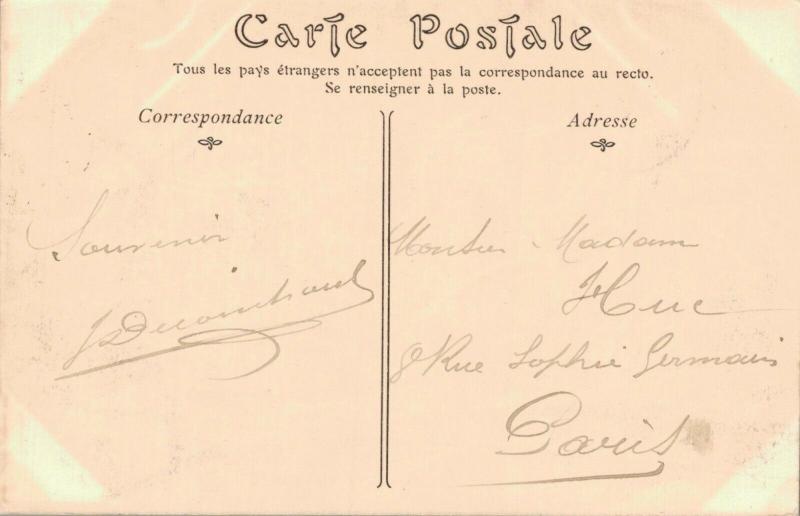 Carte Postale
Tous les pays étrangers n'acceptent pas la correspondance au recto.
Se renseigner à la poste.
Correspondance
Souvenir
Adresse
Monsieur Madam
Huc
8 Rue Sophie Germain
Paris